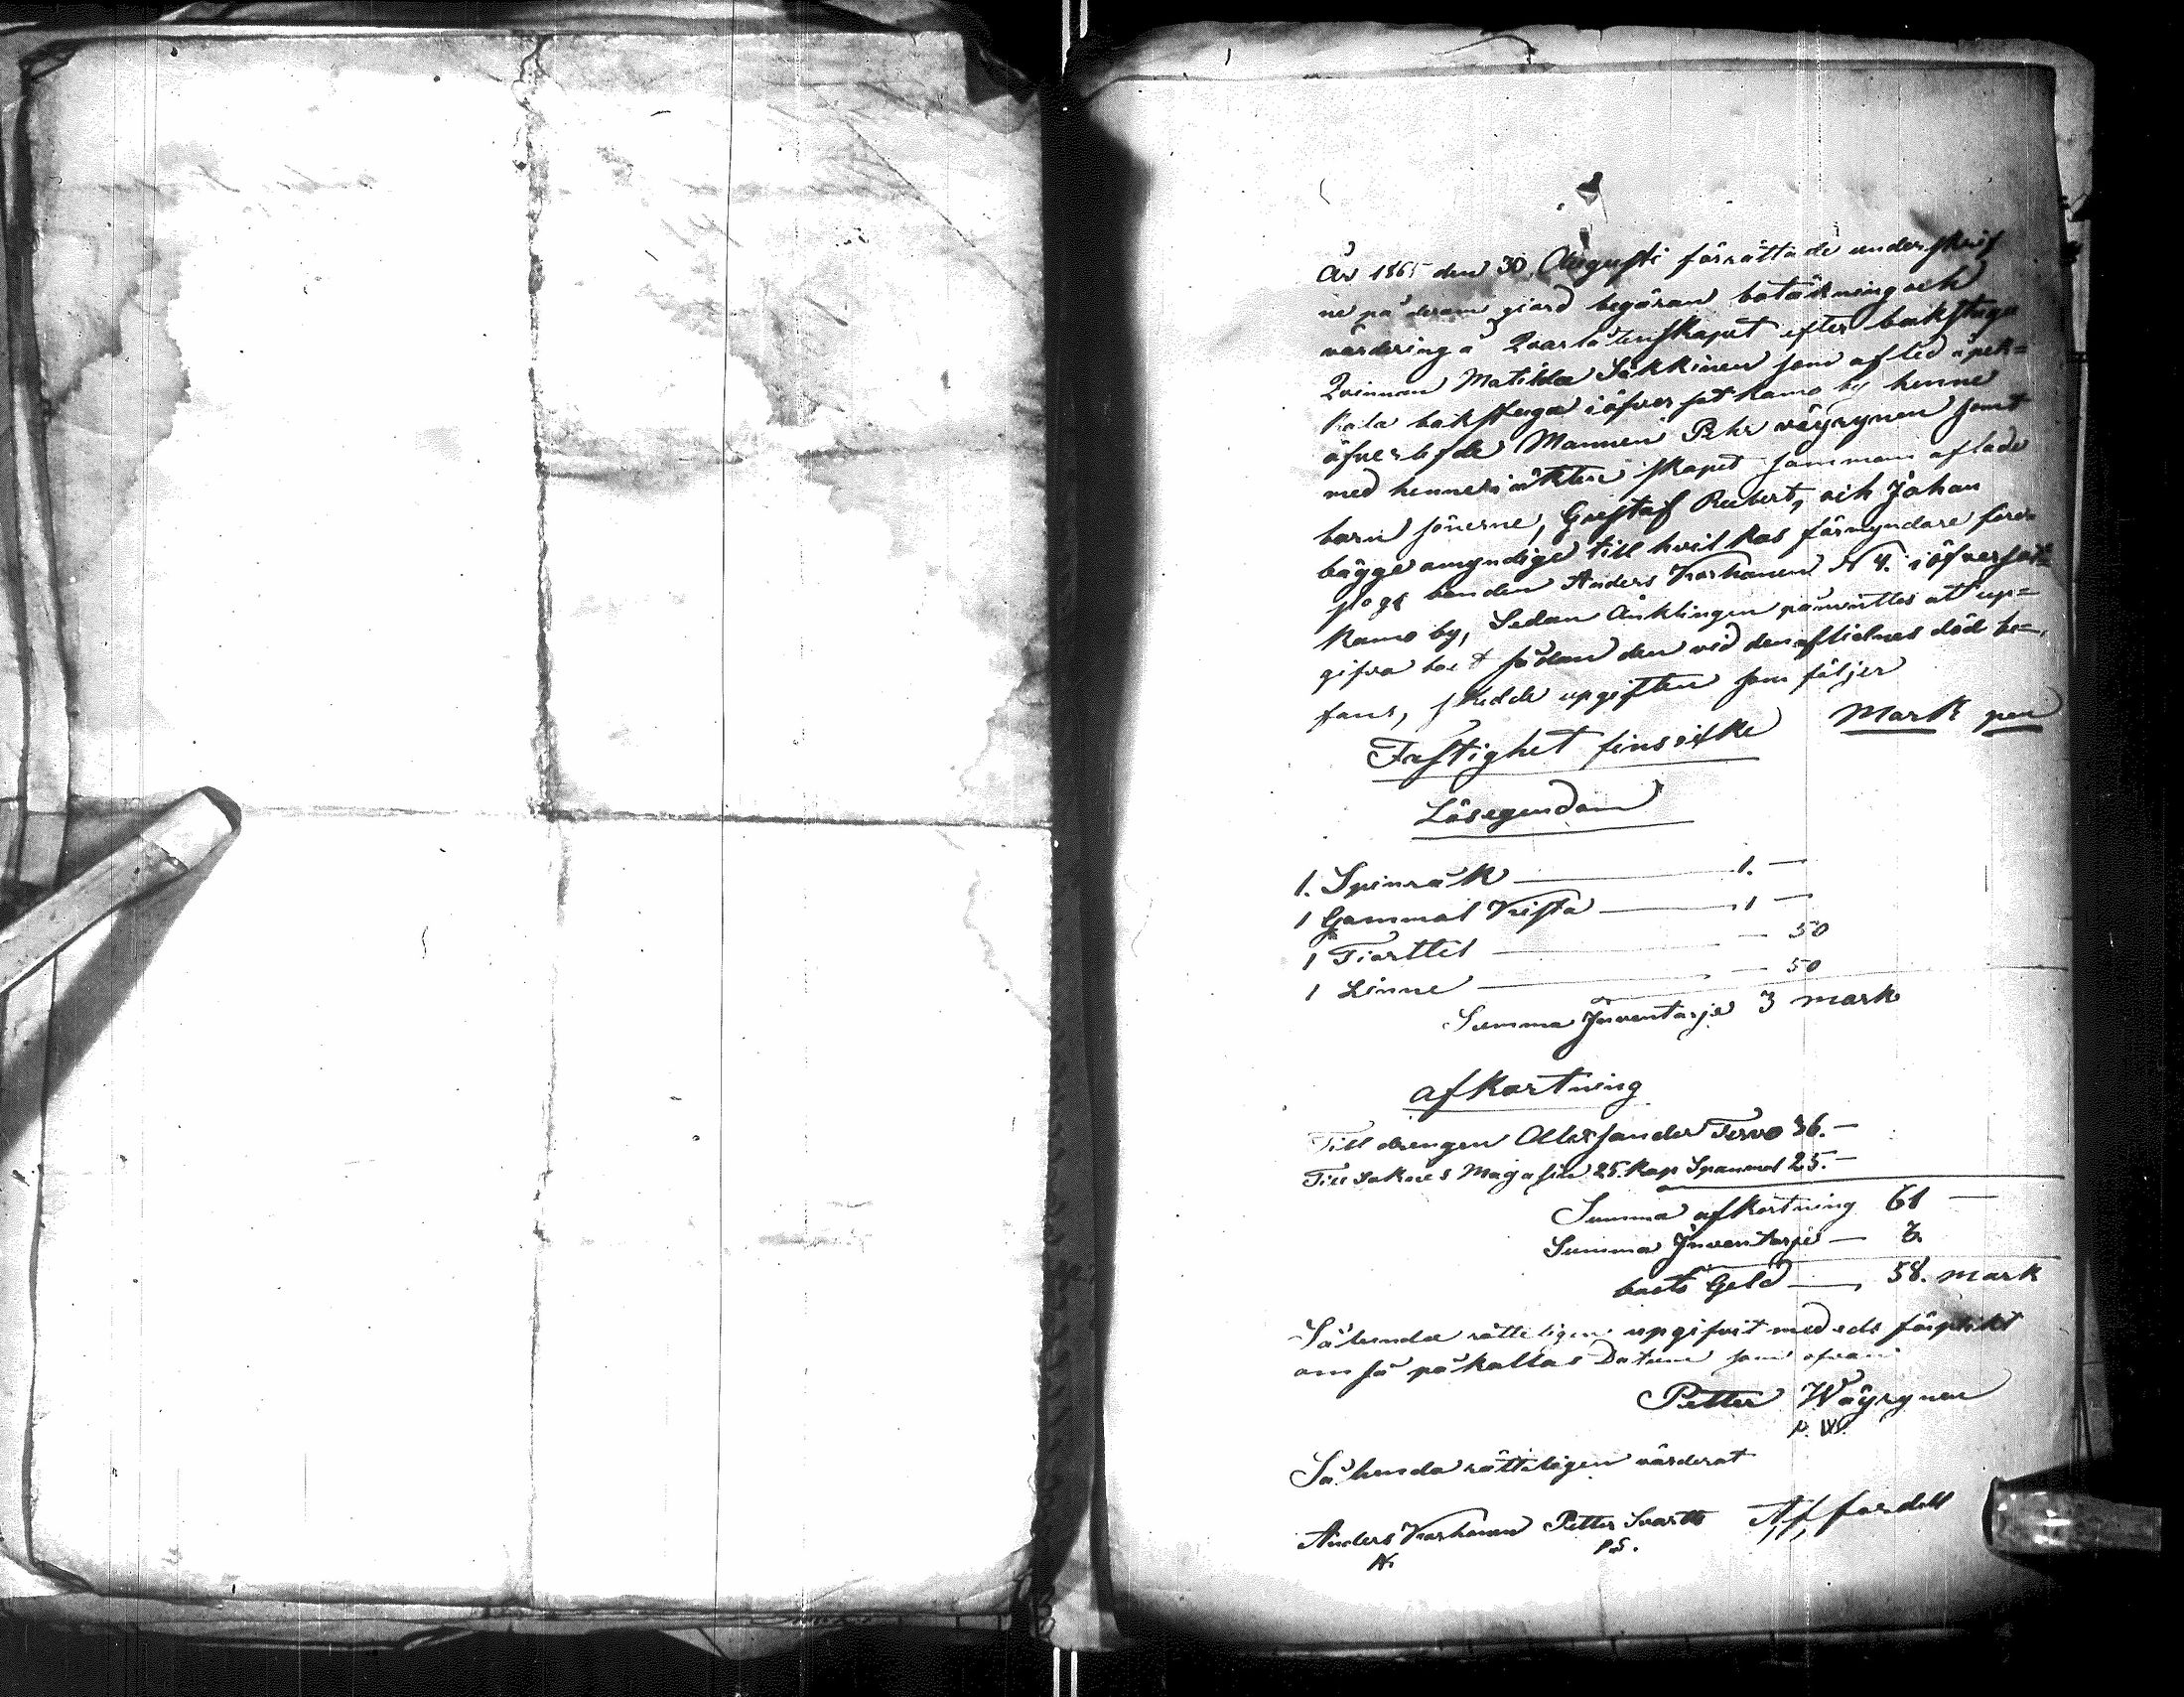 År 1865 den 30 Augusti förrättade underskrif
ne på derom giord begäran botäkning och
värdering å Qvarlåtenskapet efter bakstuge
Qvinnan Matilda Säkkinen som afled i pek=
kala bakstuga i öfver sot kamo by henne
öfverlefde Mannen Pehr väyrynen samt
med henne i äktenskapet sammans aflade
barn sönerne, Gustaf Robert, och Johan
bägge omyndige till hvilkas förmyndare före
slogs bonden Anders Karhanen N 4. i öfversot=
kamo by, Sedan Änklingen påmintes att up=
gifva boet sådan den vid den aflidnes död be=
fans, skedde upgiften som följer
Mark pen
Fastighet fins icke
Lösegendom
1. Spinråk 1. —
1 Gammal Kista 1 —
1 Fiorttel — 50
1 Linne — 50
Summa Inventarje 3 mark
afkortning
Till drengen Allexsander Tervo 36. —
Till Soknes Magasin 25. kap Spanmol 25. —
Summa afkortning 61 —
Summa Inventarje — 3
boets Geld — 58. mark
Såhunda rätteligen upgifvit med eds förplikt
om så påkallas Datum som ofvan
Petter Wäyrynen
P. W.
Såhunda rätteligen värderat
Anders Karhanen Petter Svartt A, f, fordell
P. S.